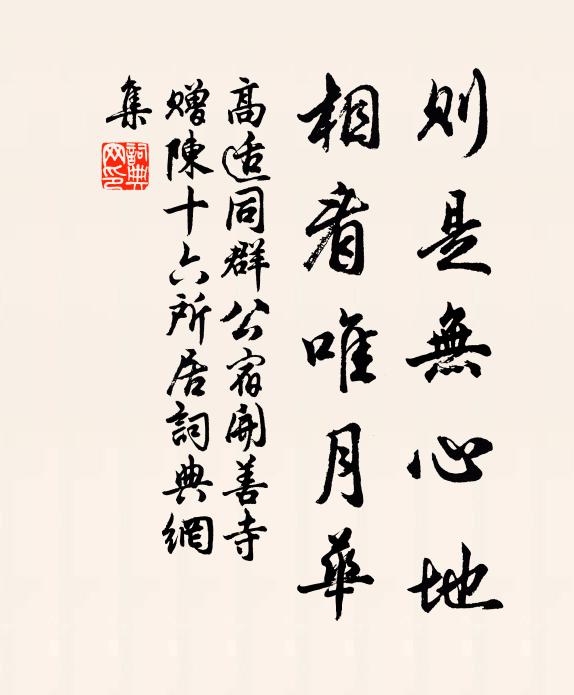 则是無心地
相看唯月華
高适同群公宿開善寺
贈陳十六所居詞典網
集
詞典
网印